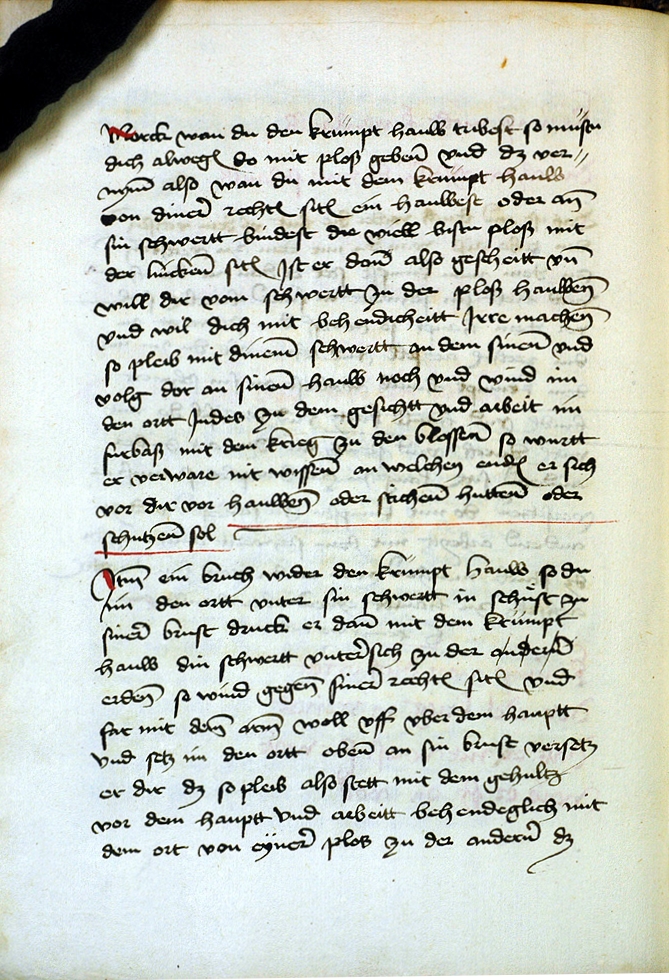 Merck wan du den krumpt hauw tribest so mustu
dich alwegen do mit plosz geben vnd dz ver//
nym also wan du mit dem krumpt hauw
von diner rechten siten ein hauwest oder an
sin schwertt bindest die wiell bistu plosz mit
der lincken siten Ist er dann also gescheitt vnd
will dir vom schwertt zu der plosz hauwen
vnd wil dich mit behendicheitt Irre machen
so pleib mit dinem schwertt an dem sinen vnd
volg dor an sinem hauw noch vnd wind im
den ortt Indes zu dem gesichtt vnd arbeit im
furbasz mit dem krieg zu den blossen so wurtt
er verware nit wissen an welchen enden er sich
vor dir vor hauwen oder stichen hutten oder
schutzen sol
Item ein bruch wider den krumpt hauw so du
im den ortt vnter sin schwertt in schust zu
siner brust druck er dann mit dem krumpt
hauw din schwertt vntersich zu der andern
erden so wind gegen siner rechten siten vnd
far mit dem arm woll vff vber dem hauptt
vnd setz im den ortt oben an sin brust versetz
er dir dz so pleib also stett mit dem gehultz
vor dem hauptt vnd arbeitt behendeglich mit
dem ort von eyner plos zu der andern dz